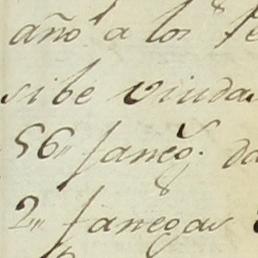 año a los
sibe viudas
56 faneg.s da
2 fanegas